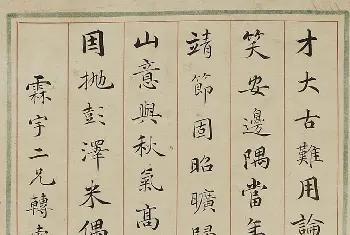 才大古難用論
笑安邊隅當年
靖節固昭曠歸
山意與秋氣高
因拋彭澤米偶
霖宇二兄轉